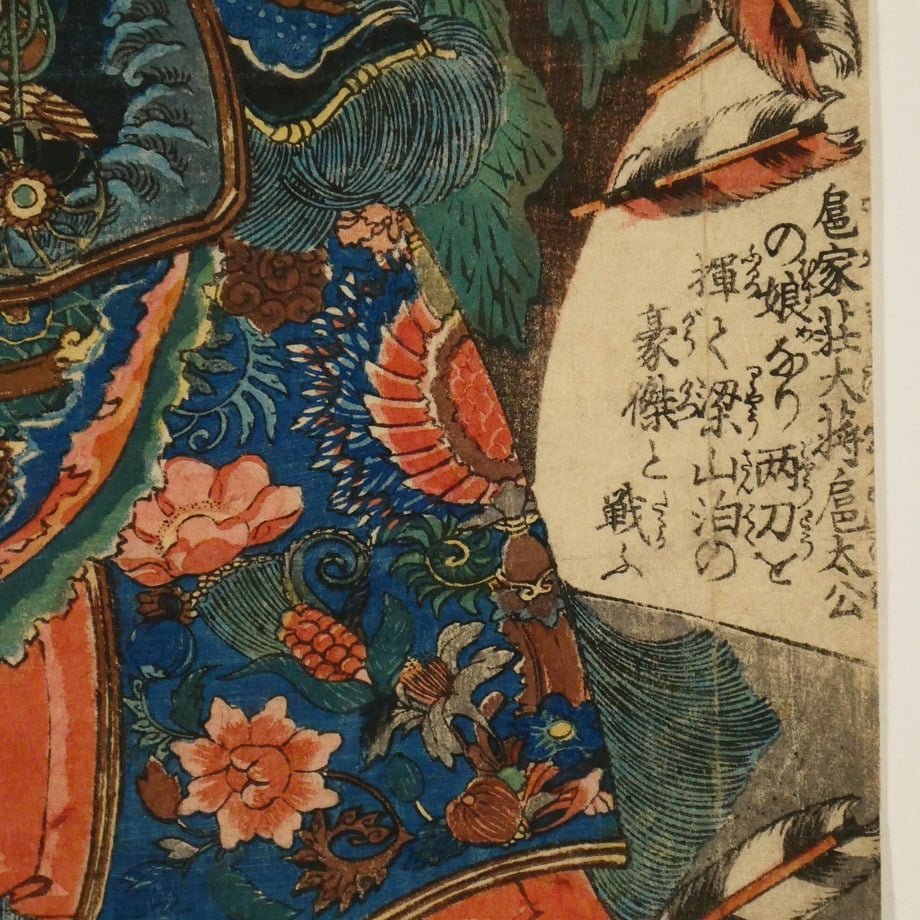 扈家荘大将扈太公
の娘なり両刀を
揮て梁山泊の
豪傑と戦ふ